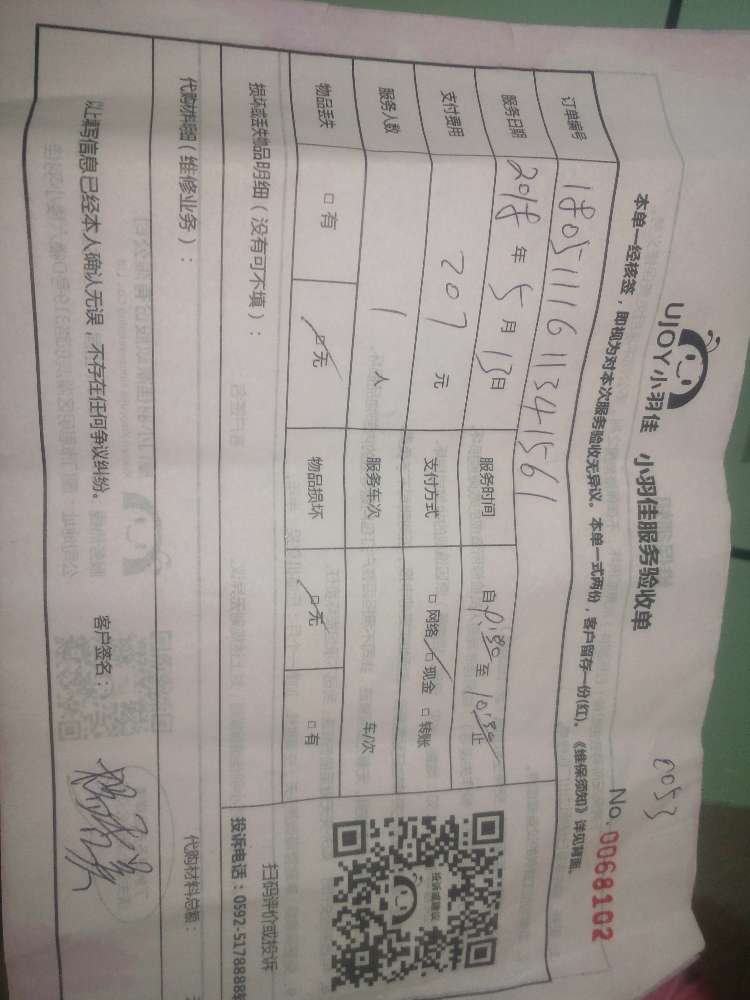 UJOY小羽佳 小羽佳服务验收单
2053
No. 0068102
本单一经核签，即视为对本次服务验收无异议。本单一式两份，客户留存一份(红)。《维保须知》详见背面。
订单编号 1805111611341561
服务日期 2018年5月13日 服务时间 自 至 止
支付费用 207元 支付方式 □网络 ☑现金 □转账
服务人数 1人 服务车次 车/次
物品丢失 □有 ☑无 物品损坏 ☑无 □有
损坏或丢失物品明细（没有可不填）：
投诉或建议
扫码评价或投诉
投诉电话：0592-5178888转
代购材料明细（维修业务）：
代购材料总额：
以上填写信息已经本人确认无误，不存在任何争议纠纷。 客户签名：